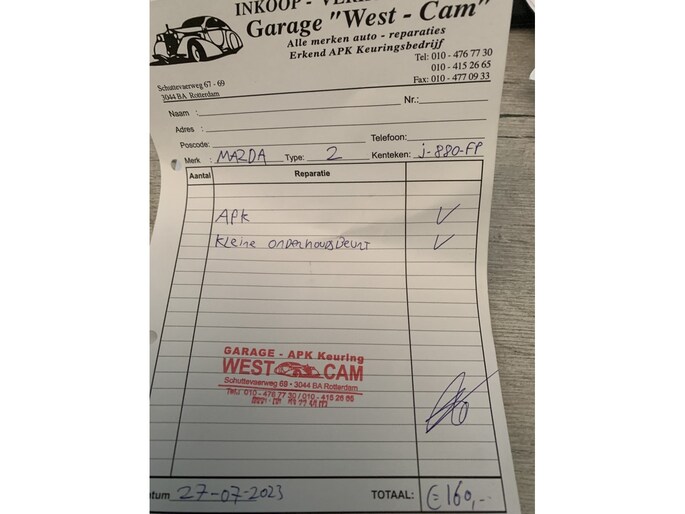 INKOOP - VER
Garage "West - Cam"
Alle merken auto - reparaties
Erkend APK Keuringsbedrijf
Tel: 010 - 476 77 30
010 - 415 26 65
Fax: 010 - 477 09 33
Schuttevaerweg 67 - 69
3044 BA Rotterdam
Naam : Nr.:
Adres :
Poscode: Telefoon:
Merk : MAZDA Type: 2 Kenteken: j-880-FP
Aantal Reparatie
APK
Kleine onderhoudsbeurt
GARAGE - APK Keuring
WEST CAM
Schuttevaerweg 69 - 3044 BA Rotterdam
Tel.: 010 - 476 77 30 / 010 - 415 26 65
tum 27-07-2023 TOTAAL: € 160,-